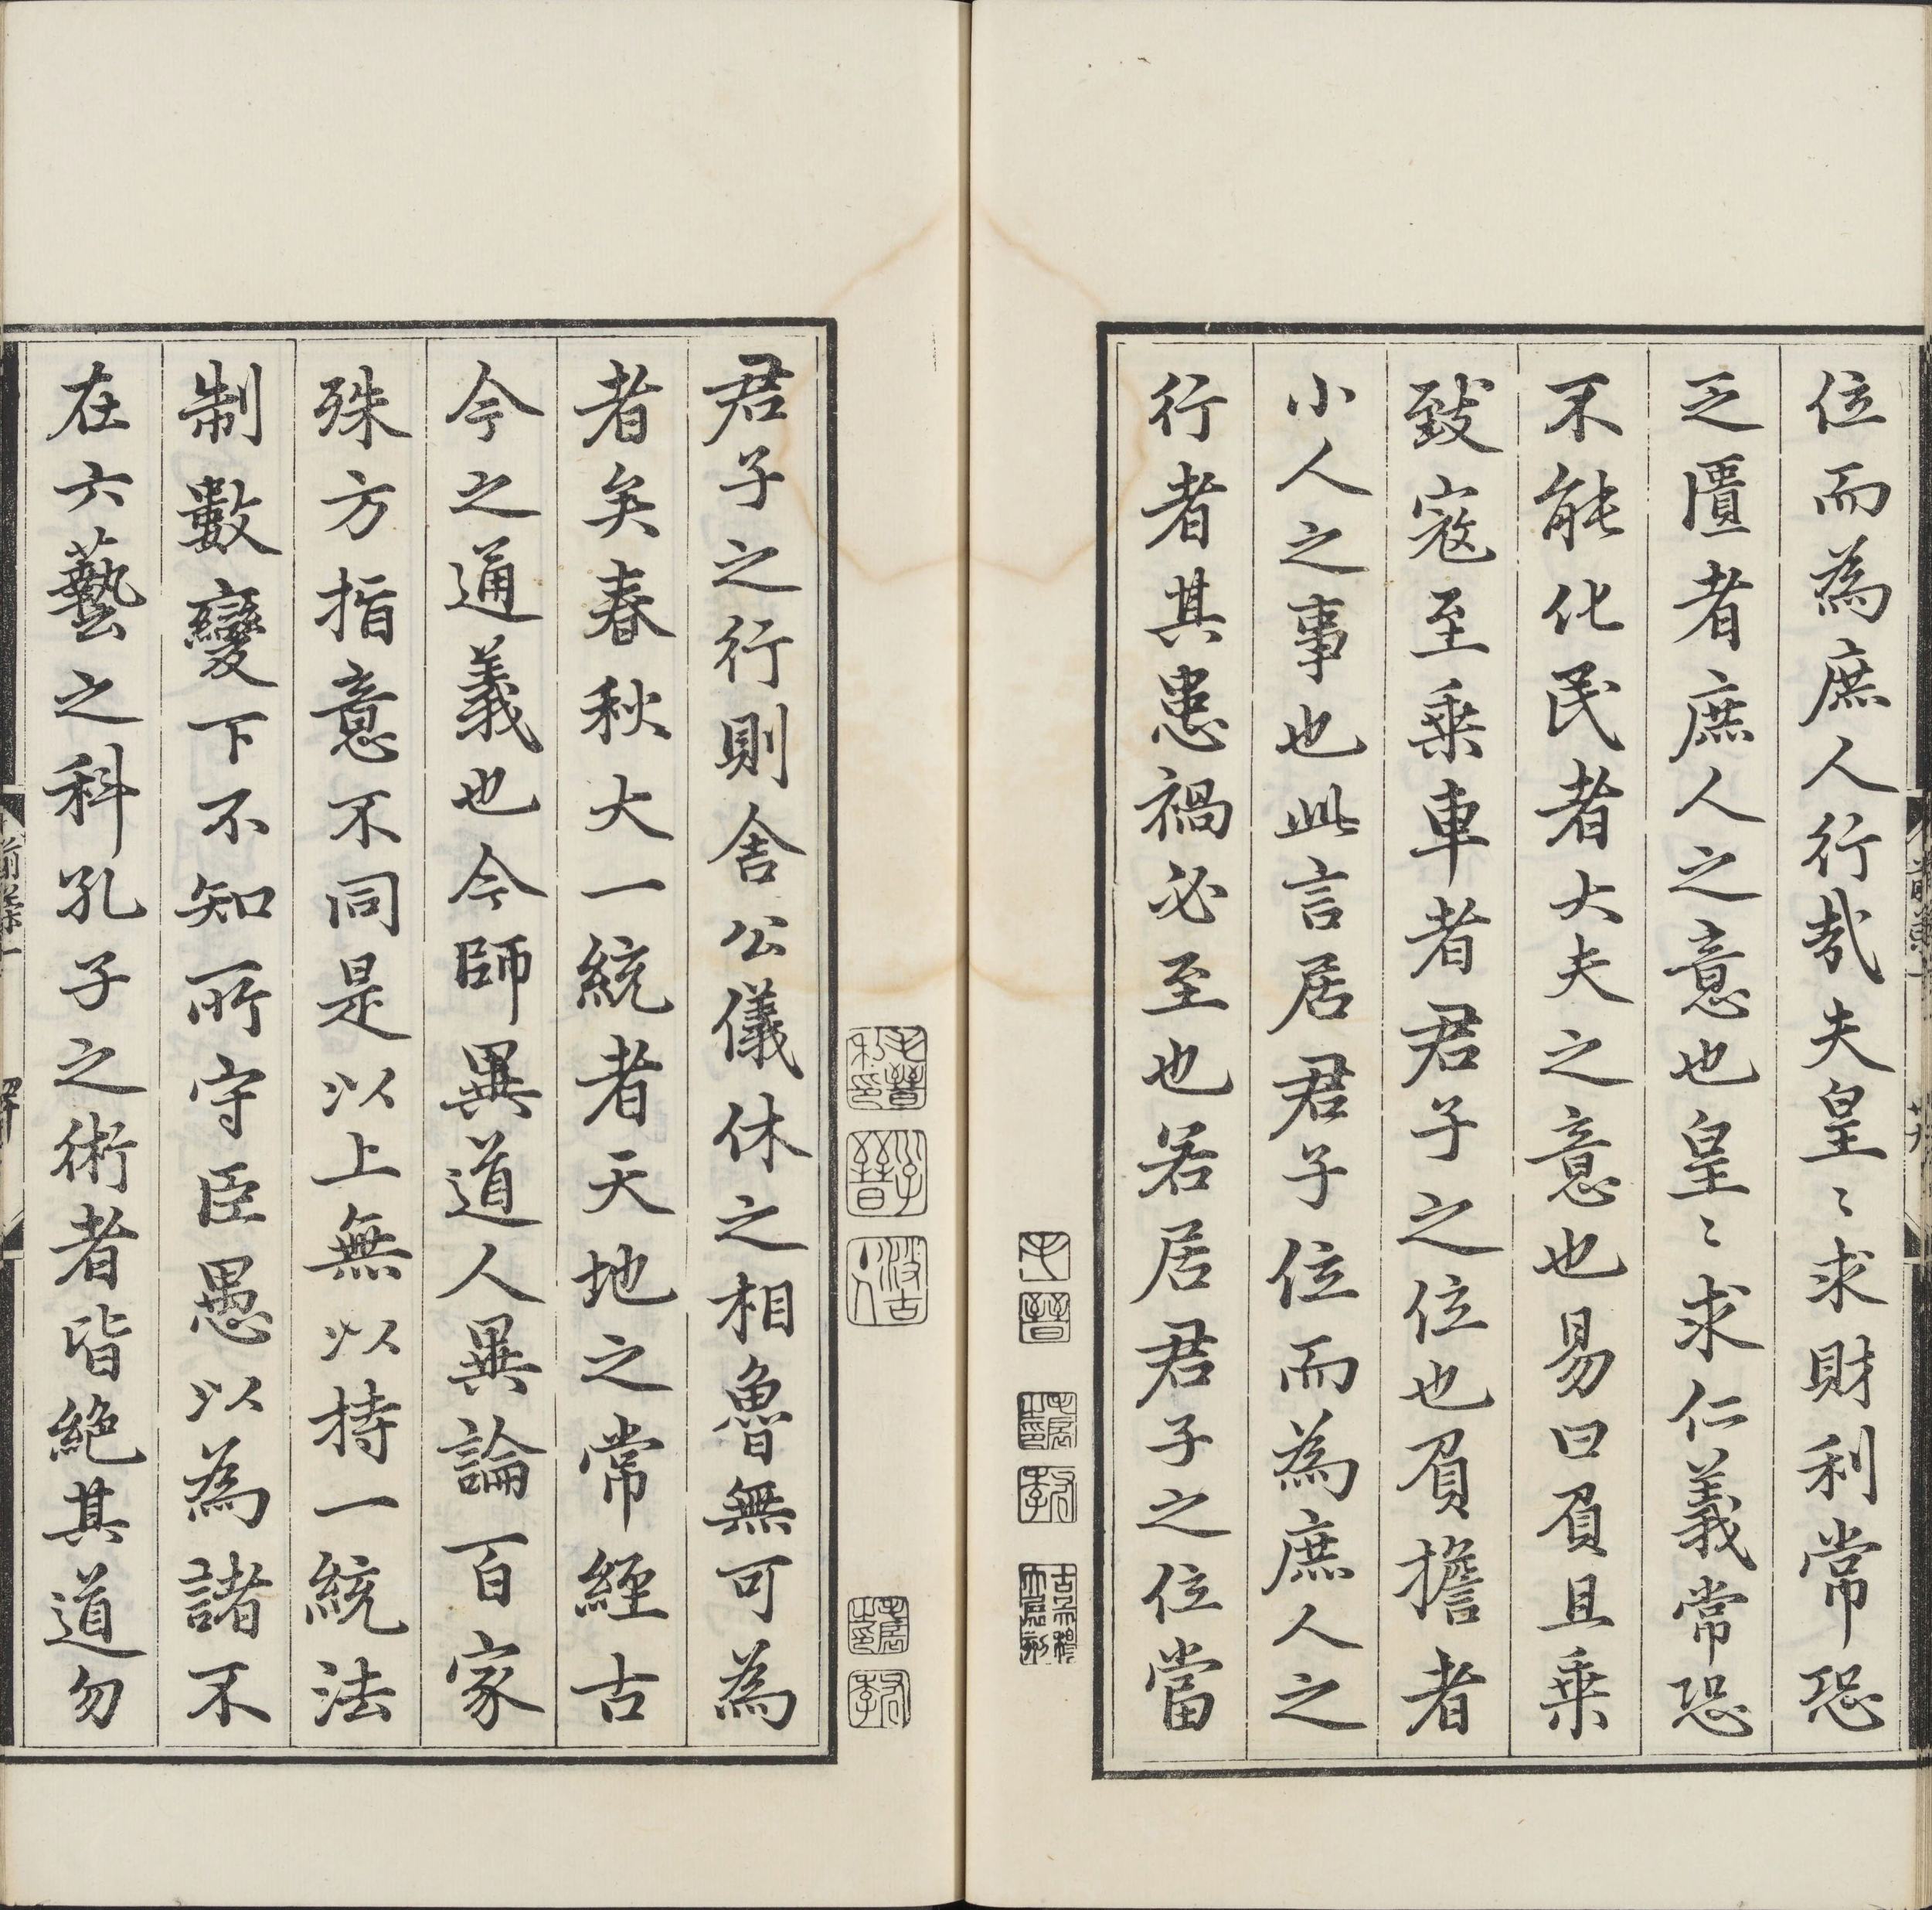 位而為庶人行㢤夫皇〻求財利常恐
乏匱者庶人之意也皇〻求仁義常恐
不能化民者大夫之意也易曰負且乗
致寇至乗車者君子之位也負擔者
小人之事也此言居君子位而為庶人之
行者其患禍必至也若居君子之位當
君子之行則舍公儀休之相魯無可為
者矣春秋大一統者天地之常經古
今之通義也今師異道人異論百家
殊方指意不同是以上無以持一統法
制數變下不知所守臣愚以為諸不
在六藝之科孔子之術者皆絕其道勿
毛晉